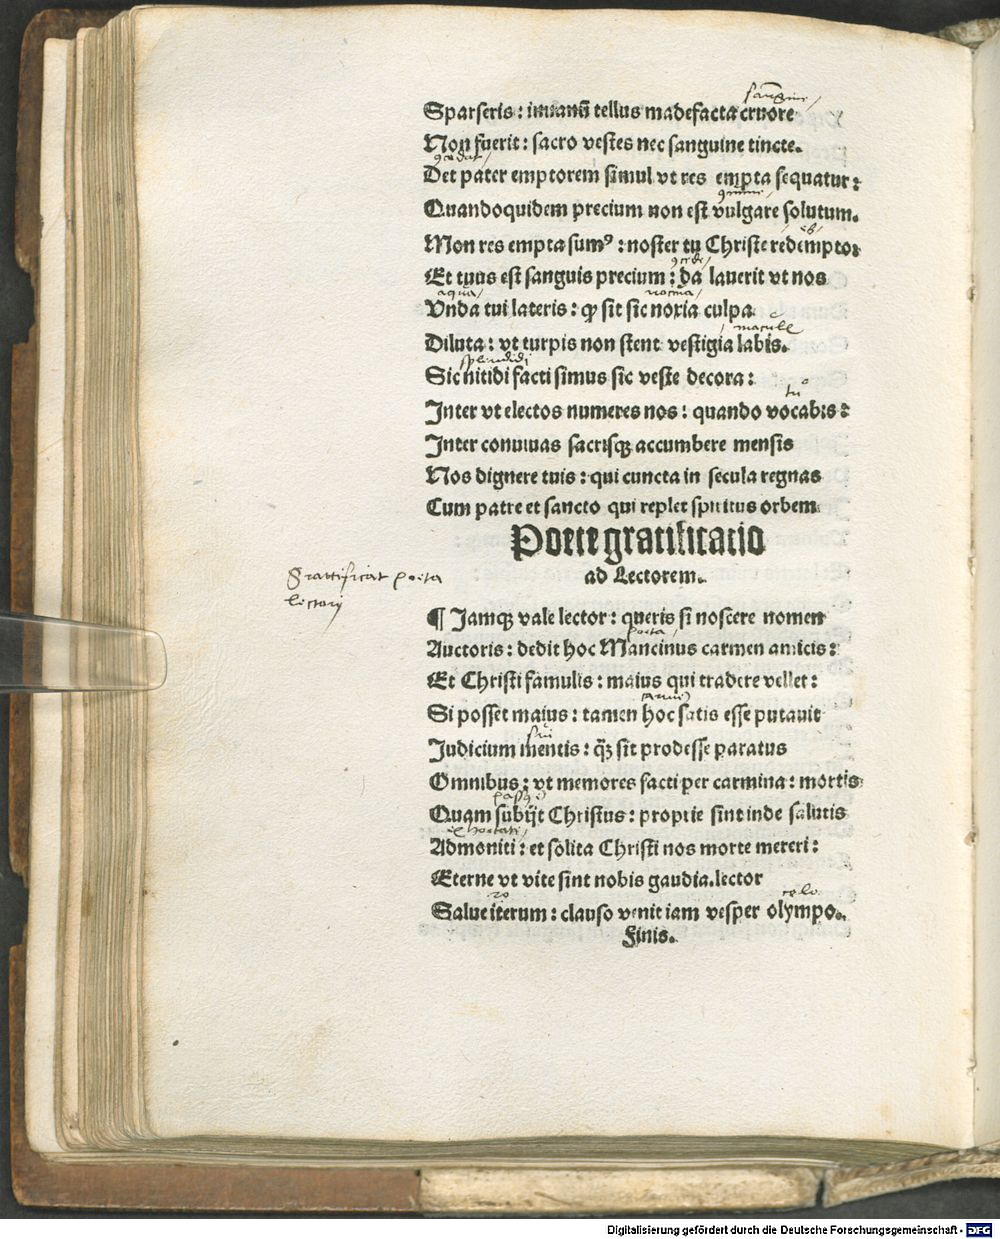 sanguine
Sparseris: inuanū tellus madefacta cruore
Non fuerit: sacro vestes nec sanguine tincte.
Det pater emptorem simul vt res empta sequatur:
Quandoquidem precium non est vulgare solutum.
Mon res empta sumꝰ: noster tu Christe redemptor
Et tuus est sanguis precium: da lauerit vt nos
aqua
Vnda tui lateris: ꝙ sit sic noxia culpa
macule
Diluta: vt turpis non stent vestigia labis.
splendidi
Sic nitidi facti simus sic veste decora:
tu
Inter vt electos numeres nos: quando vocabis:
Inter conuiuas sacrisqꝫ accumbere mensis
Nos dignere tuis: qui cuncta in secula regnas
Cum patre et sancto qui replet spiritus orbem
Poete gratificatio
ad Lectorem.
Grattificat poeta
lectori
¶ Jamqꝫ vale lector: queris si noscere nomen
poeta
Auctoris: dedit hoc Mancinus carmen amicis:
Et Christi famulis: maius qui tradere vellet:
Si posset maius: tamen hoc satis esse putauit
sui
Judicium mentis: qꝫ sit prodesse paratus
Omnibus: vt memores facti per carmina: mortis
Quam subijt Christus: proprie sint inde salutis
exhortati
Admoniti: et solita Christi nos morte mereri:
Eterne vt vite sint nobis gaudia. lector
celo
Salue iterum: clauso venit iam vesper olympo.
Finis.
Digitalisierung gefördert durch die Deutsche Forschungsgemeinschaft - DFG